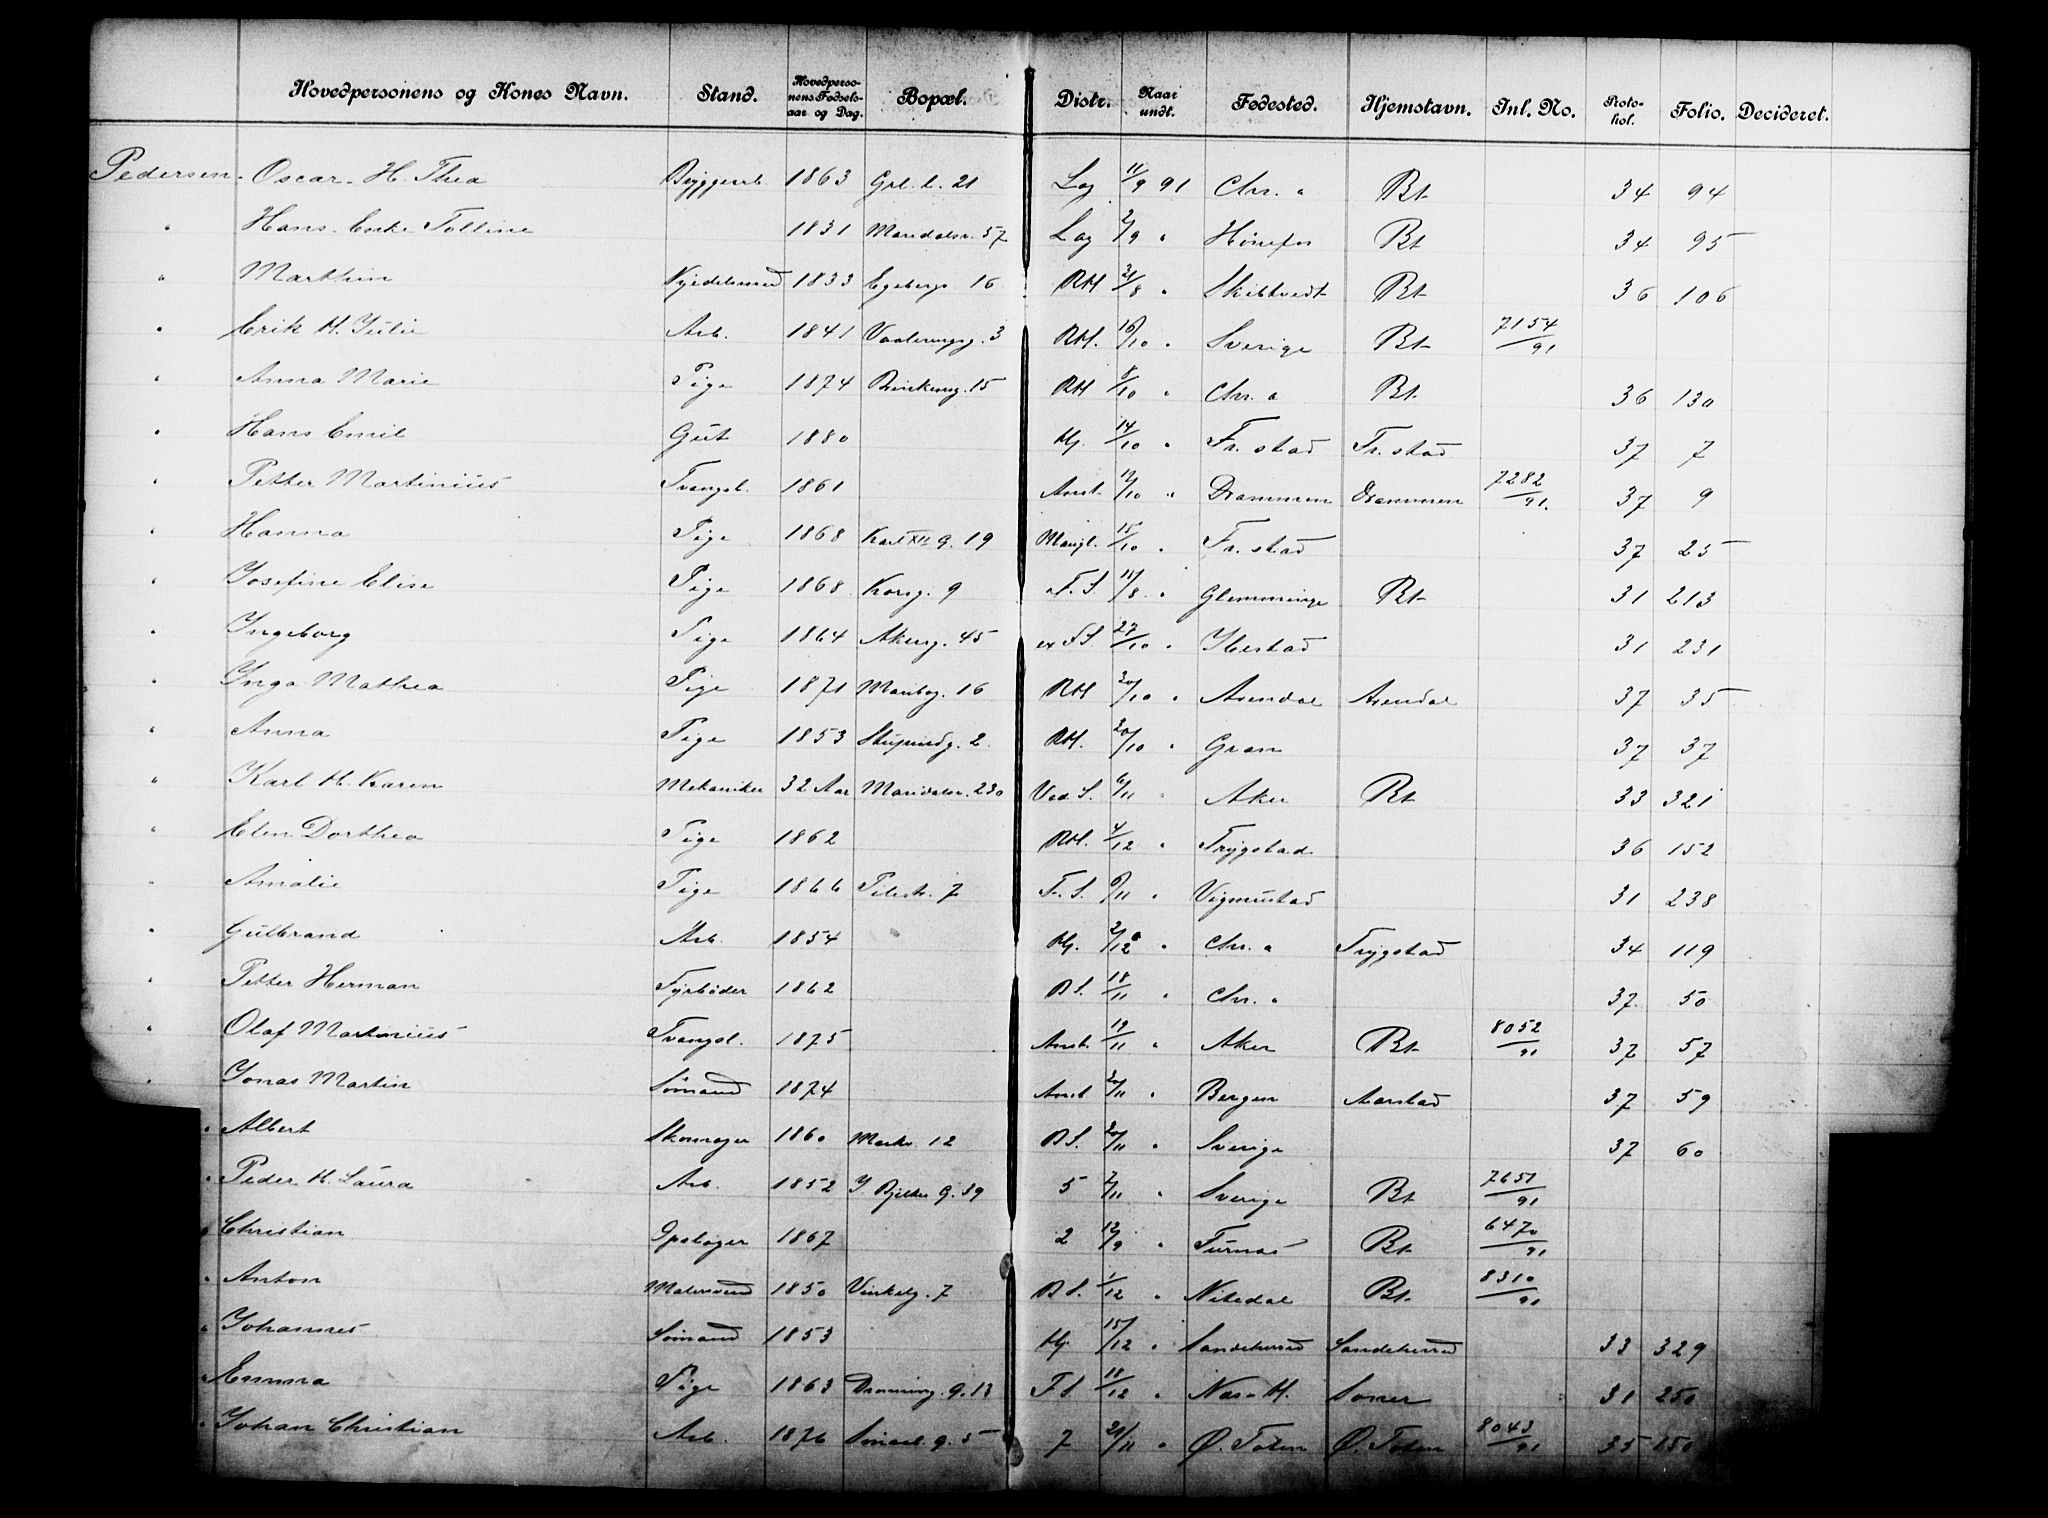 Hovedpersonens og Kones Navn. Stand. Hovedpersonens Fødselsaar og Dag. Bopæl. Distr. Naar undt. Fødested. Hjemstavn. Inl. No. Protokol. Folio. Decideret.
Pedersen. Oscar H. Thea Byggearb. 1863 Grl. l. 21 Lag 11/9 91 Chr. a Bt 34 94
" Hans Enke Tolline 1831 Maridalsv. 57 Lag 2/9 " Hønefos Bt 34 95
" Marthin 1833 Egebergs 16 RH 31/8 " Skibtvedt Bt 36 106
" Erik H. Julie Arb. 1841 Vaalerengg. 3 RH. 16/10 " Sverige Bt 7154/91
" Anna Marie Pige 1874 15 RH 8/10 " Chr. a Bt 36 130
" Hans Emil Gut 1880 Hj. 14/10 " Fr. stad Fr. stad 37 7
" Petter Martinius Tvangsl. 1861 Anst. 12/10 " Drammen Drammen 7282/91. 37 9
" Hanna Pige 1868 Karl XII g. 19 Mangl. 15/10 " Fr. stad 37 25
" Josefine Elise Pige 1868 Korsg. 9 F. S. 18/8 " Glemminge Bt 31 213
" Ingeborg Pige 1864 Akersg. 45 ex F S. 27/10 " Ibestad 31 231
" Inga Mathea Pige 1871 Maribog. 16 RH 20/10 " Arendal Arendal 37 35
" Anna Pige 1853 Stupindg. 2 RH. 20/10 " Gran 37 37
" Karl H. Karen Mekaniker 32 Aar Maridalsv. 230 Ved S. 6/11 " Aker Bt 33 321
" Elen Dorthea Pige 1862 RH. 4/12 " Trygstad 36 152
" Amalie Pige 1866 Pilestr. 7 F. S. 6/11 " Vigmustad 31 238
" Gulbrand Arb. 1854 Hj. 2/12 " Chr. a Trygstad 34 119
" Petter Herman Fyrbøder 1862 B S. 18/11 " Chr. a 37 50
" Olaf Martinius Tvangsl. 1875 Anst. 19/11 " Aker Bt 8052/91 37 57
" Jonas Martin Sømand 1874 Anst 20/11 " Bergen Aarstad 37 59
" Albert Skomager 1860 Markv 12 B S. 20/11 " Sverige 37 60
" Peder H. Laura Arb. 1852 J Bjelkes g. 39 5 7/11 " Sverige Bt 7651/91
" Christian Opslager 1867 2 12/9 " Furnæs Bt 6470/91
" Anton Malersvend 1850 Vinkelg. 7 B S. 1/12 " Nitedal Bt 8310/91
" Johannes Sømand 1853 Hj 15/12 " Sandeherred Sandeherred 33 329
" Emma Pige 1863 Dronning. g. 13 F S. 11/12 " Næs H. Soner 31 250
" Johan Christian Arb. 1876 Smaal. g. 5 7 21/11 " Ø. Toten Ø. Toten 8043/91 35 150